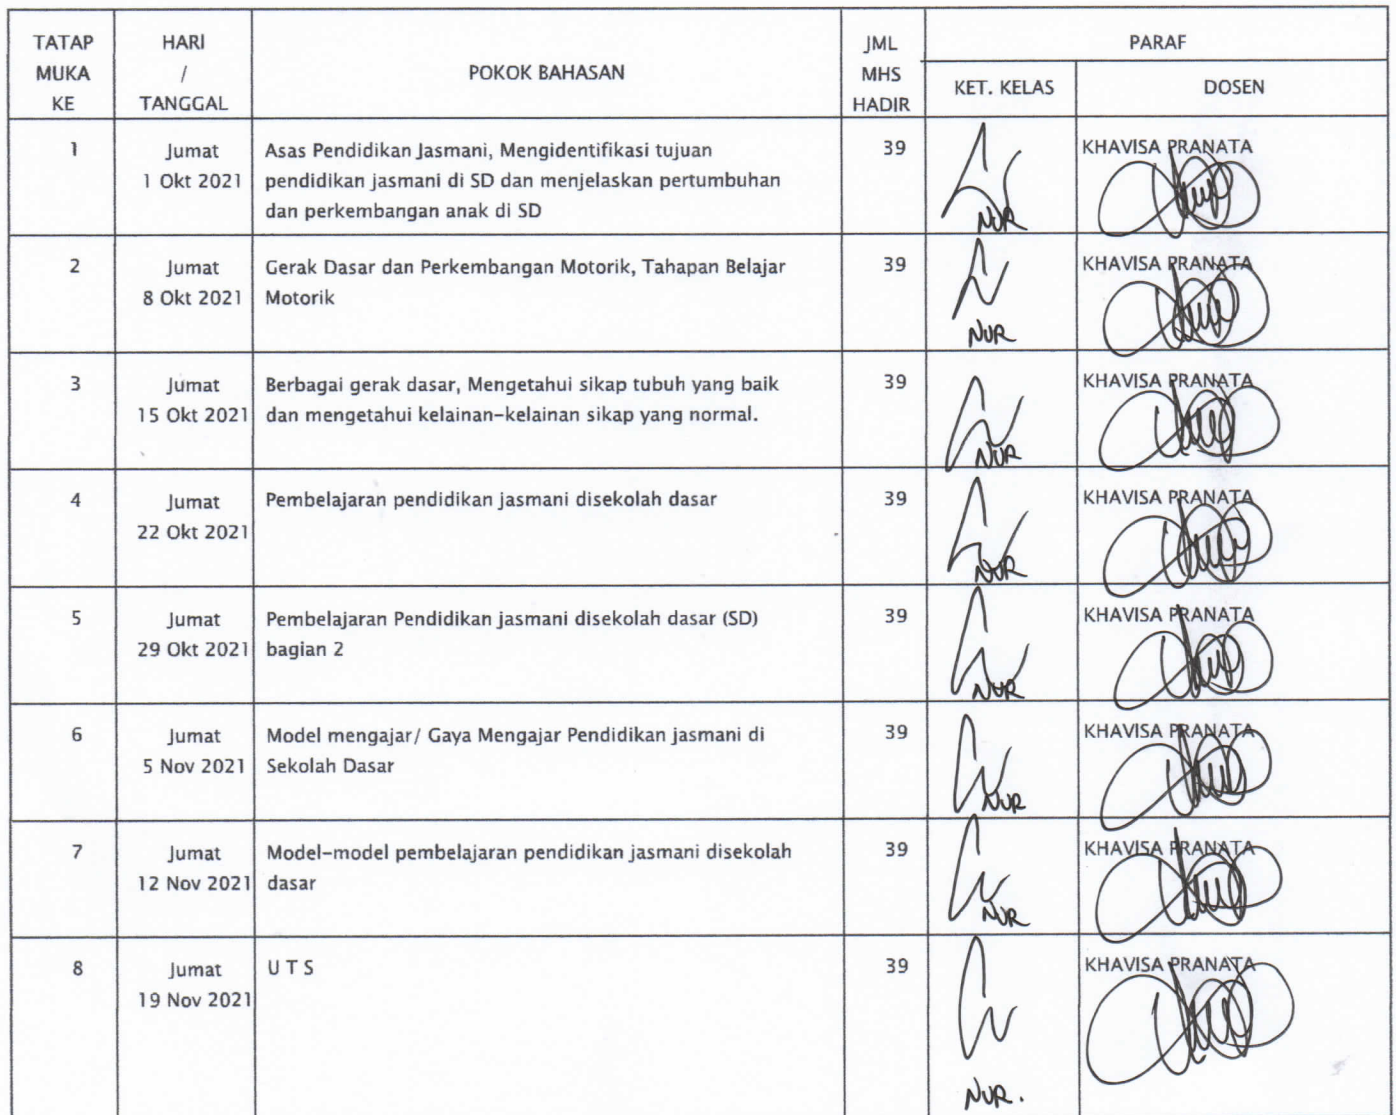 TATAP
MUKA
KE
HARI
/
TANGGAL
POKOK BAHASAN
JML
MHS
HADIR
PARAF
KET. KELAS
DOSEN
1
Jumat
1 Okt 2021
Asas Pendidikan Jasmani, Mengidentifikasi tujuan
pendidikan jasmani di SD dan menjelaskan pertumbuhan
dan perkembangan anak di SD
39
NUR
KHAVISA PRANATA
2
Jumat
8 Okt 2021
Gerak Dasar dan Perkembangan Motorik, Tahapan Belajar
Motorik
39
NUR
KHAVISA PRANATA
3
Jumat
15 Okt 2021
Berbagai gerak dasar, Mengetahui sikap tubuh yang baik
dan mengetahui kelainan-kelainan sikap yang normal.
39
NUR
KHAVISA PRANATA
4
Jumat
22 Okt 2021
Pembelajaran pendidikan jasmani disekolah dasar
39
NUR
KHAVISA PRANATA
5
Jumat
29 Okt 2021
Pembelajaran Pendidikan jasmani disekolah dasar (SD)
bagian 2
39
NUR
KHAVISA PRANATA
6
Jumat
5 Nov 2021
Model mengajar/ Gaya Mengajar Pendidikan jasmani di
Sekolah Dasar
39
NUR
KHAVISA PRANATA
7
Jumat
12 Nov 2021
Model-model pembelajaran pendidikan jasmani disekolah
dasar
39
NUR
KHAVISA PRANATA
8
Jumat
19 Nov 2021
U T S
39
NUR.
KHAVISA PRANATA